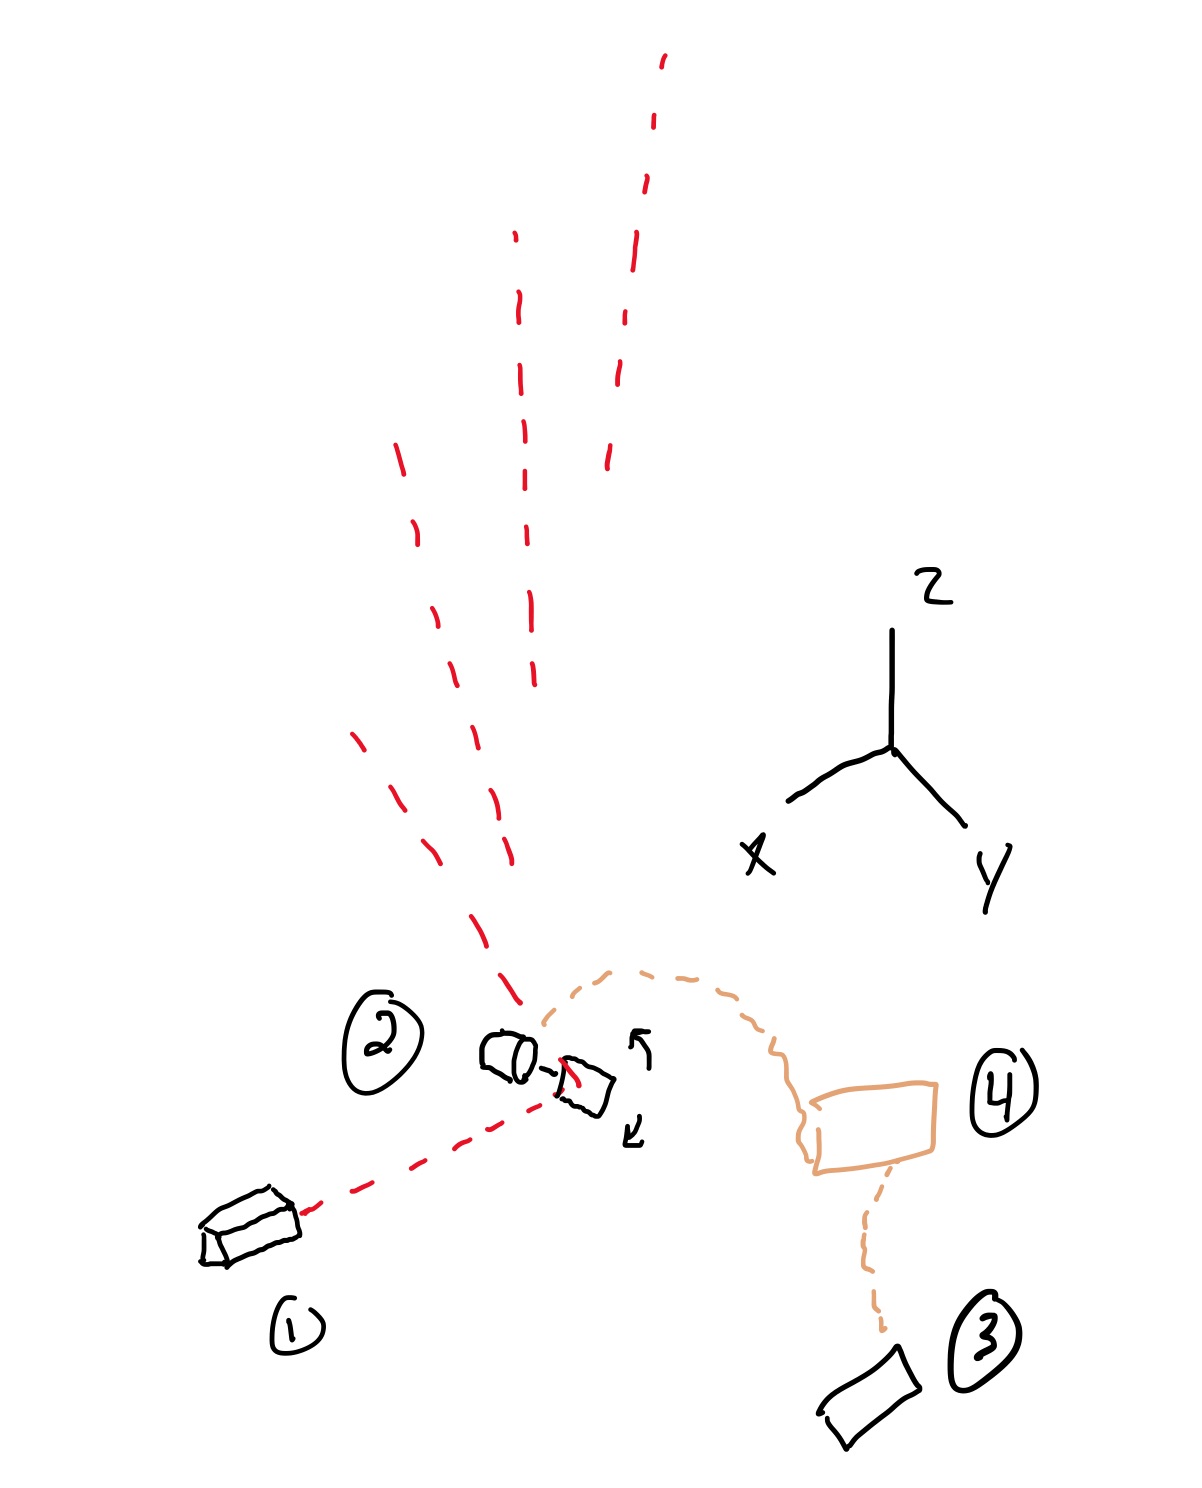 Z
X
Y
2
4
1
3